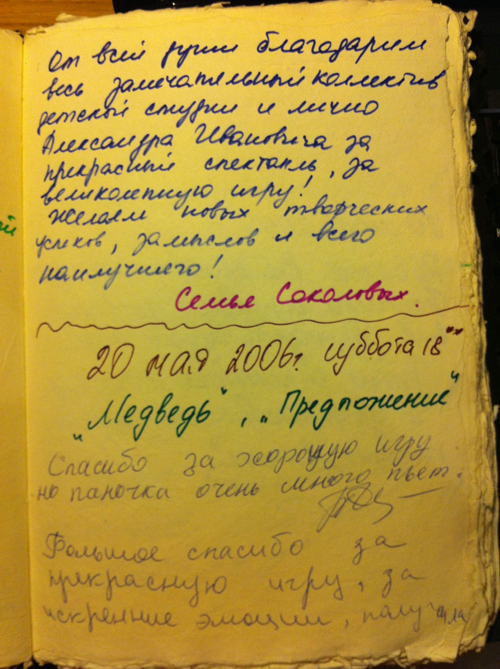 От всей души благодарим
весь замечательный коллектив
детской студии и лично
Александра Ивановича за
прекрасный спектакль, за
великолепную игру!
Желаем новых творческих
успехов, замыслов и всего
наилучшего!
Семья Соколовых.
20 мая 2006г. суббота 18°°
„Медведь“, „Предложение“
Спасибо за хорошую игру
но паночка очень много пьет.
Большое спасибо за
прекрасную игру, за
искренние эмоции, получила